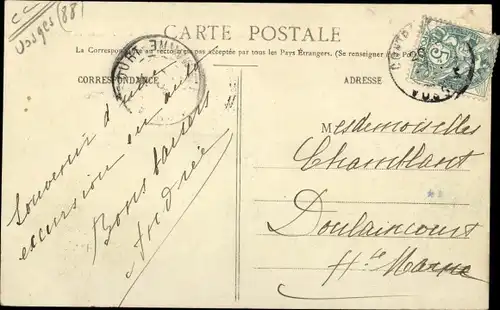 Vosges (88)
CARTE POSTALE
La Correspondance au recto n'est pas acceptée par tous les Pays Étrangers. (Se renseigner
CORRESPONDANCE
ADRESSE
Souvenir d'une
excursion en auto
Bons baisers
Andrée
Mesdemoiselles
Chamblant
Doulaincourt
Hte Marne